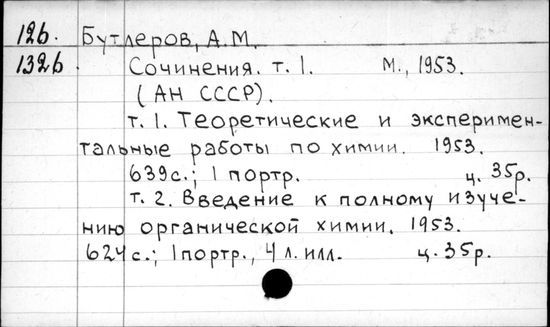 126. Бутлеров, А.М.
1326 Сочинения. т. 1. М., 1953.
(АН СССР).
т. 1. Теоретические и эксперимен-
тальные работы по химии. 1953.
639с.; 1 портр. ц. 35р.
т. 2. Введение к полному изуче-
нию органической химии. 1953.
624с.; 1 портр., 4 л. илл. ц. 35р.